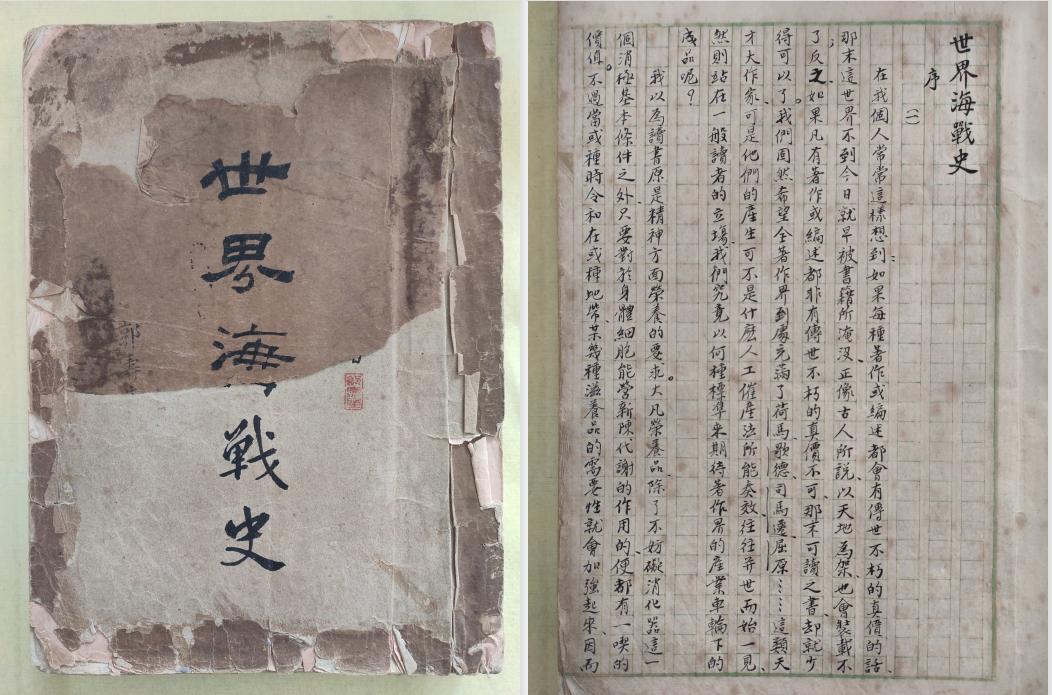 世界海戰史
郭
世界海戰史
序
(一)
在我個人常常這樣想到:如果每種著作或編述都會有傳世不朽的真價的話、
那末這世界不到今日就早被書籍所淹沒、正像古人所說、以天地為架、也會裝載不
了;反之如果凡有著作或編述都非有傳世不朽的真價不可、那末可讀之書却就少
得可以了。我們固然希望全著作界到處充滿了荷馬歌德、司馬遷、屈原……這類天
才大作家、可是他們的產生可不是什麽人工催產法所能奏效、往往并世而始一見、
然則站在一般讀者的立塲、我們究竟以何種標準來期待著作界的產業車輪下的
成品呢?
我以為讀書原是精神方面榮養的要求。大凡榮養品、除了不妨礙消化器這一
個消極基本條件之外、只要對於身體細胞能營新陳代謝的作用的、便都有一喫的
價值。不過當或種時令和在或種地帶、某幾種滋養品的需要性就會加強起來、因而